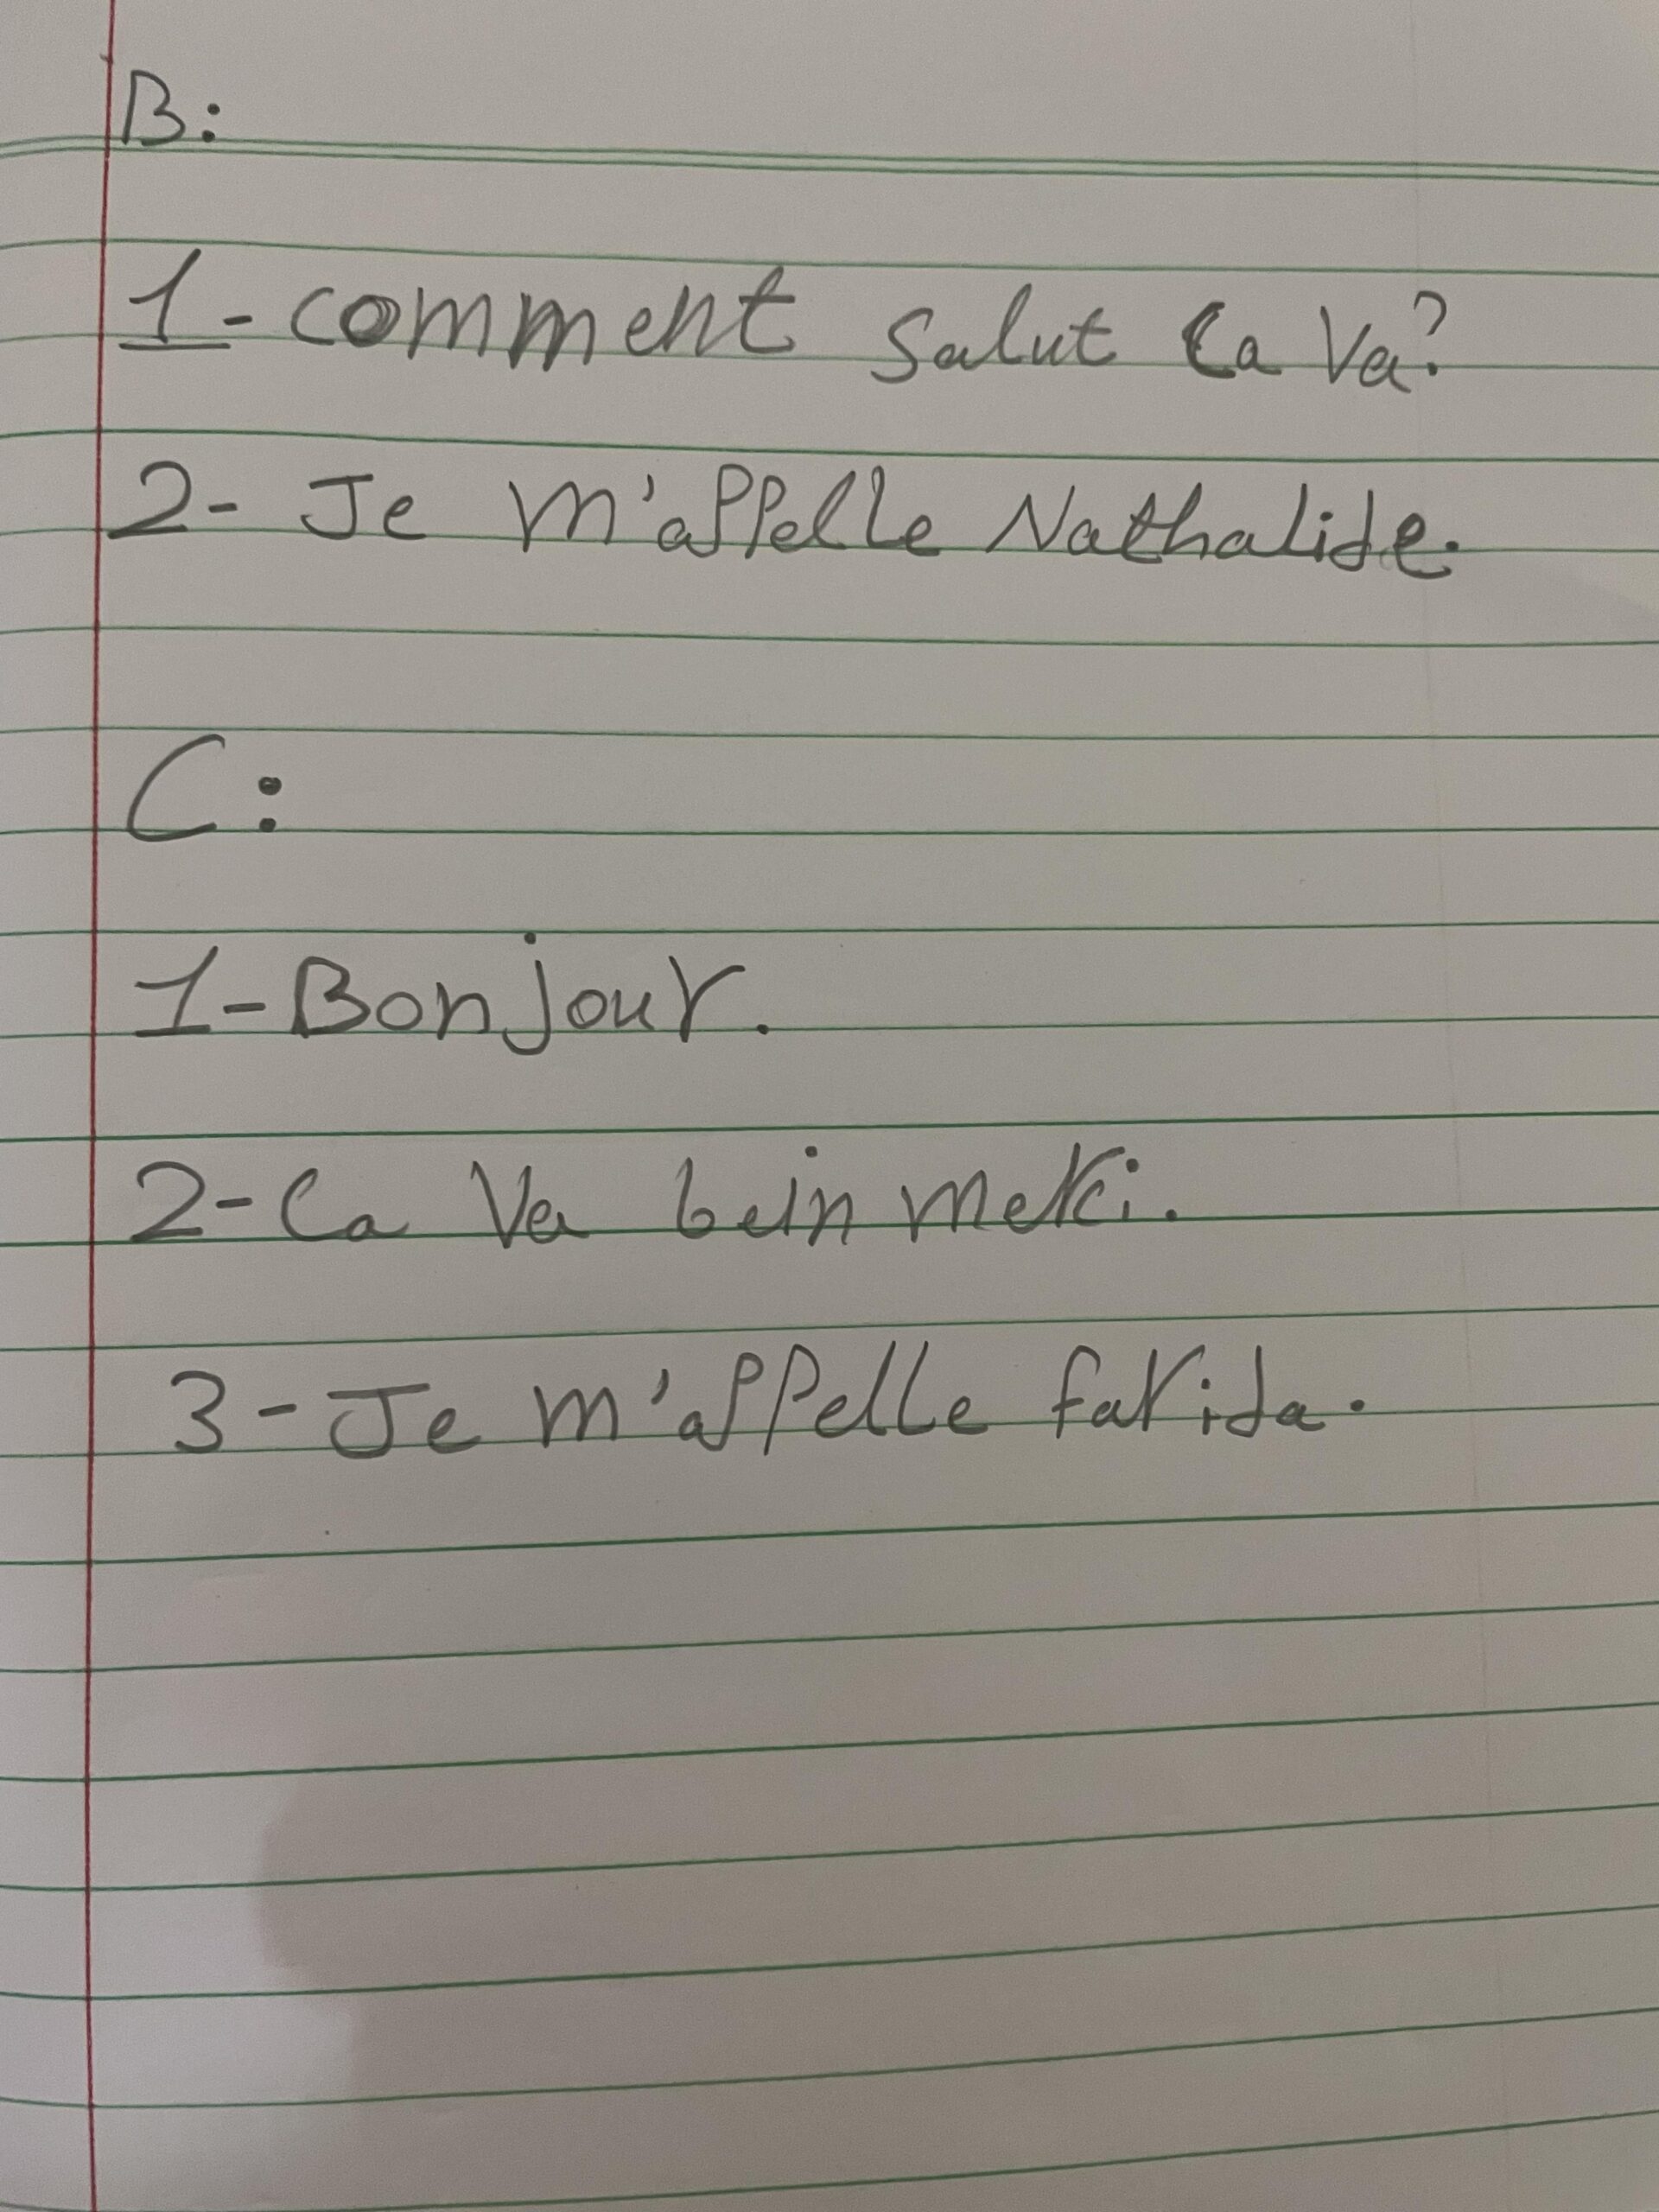 B:
1- comment salut ca va?
2- Je m'appelle Nathalide.
C:
1- Bonjour.
2- Ca va bein merci.
3- Je m'appelle farida.